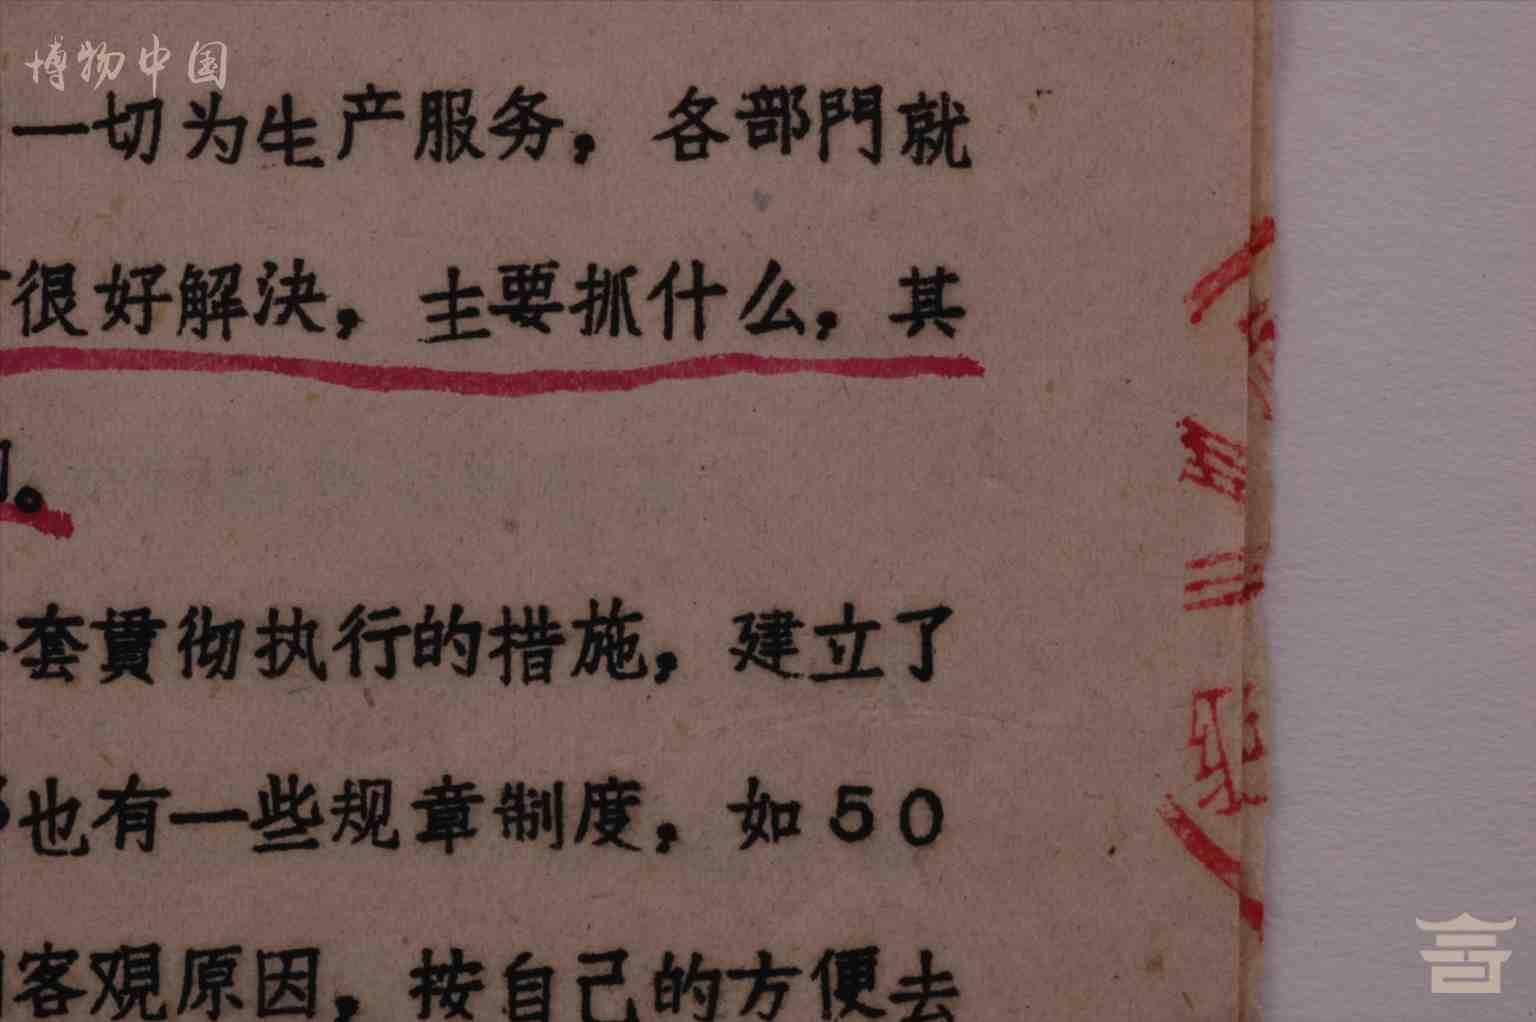 博物中国
一切为生产服务，各部門就
很好解决，主要抓什么，其
。
套貫彻执行的措施，建立了
也有一些规章制度，如50
客观原因，按自己的方便去